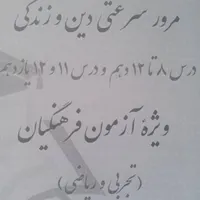 مرور سرعتی دین و زندگی
درس ۸ تا ۱۲ دهم و درس ۱۱ و ۱۲ یازدهم
ویژهٔ آزمون فرهنگیان
(تجربی و ریاضی)